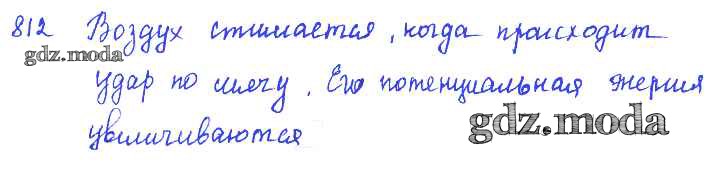 812 Воздух сжимается, когда происходит
gdz.moda
удар по мячу. Его потенциальная энергия
увеличиваются
gdz.moda